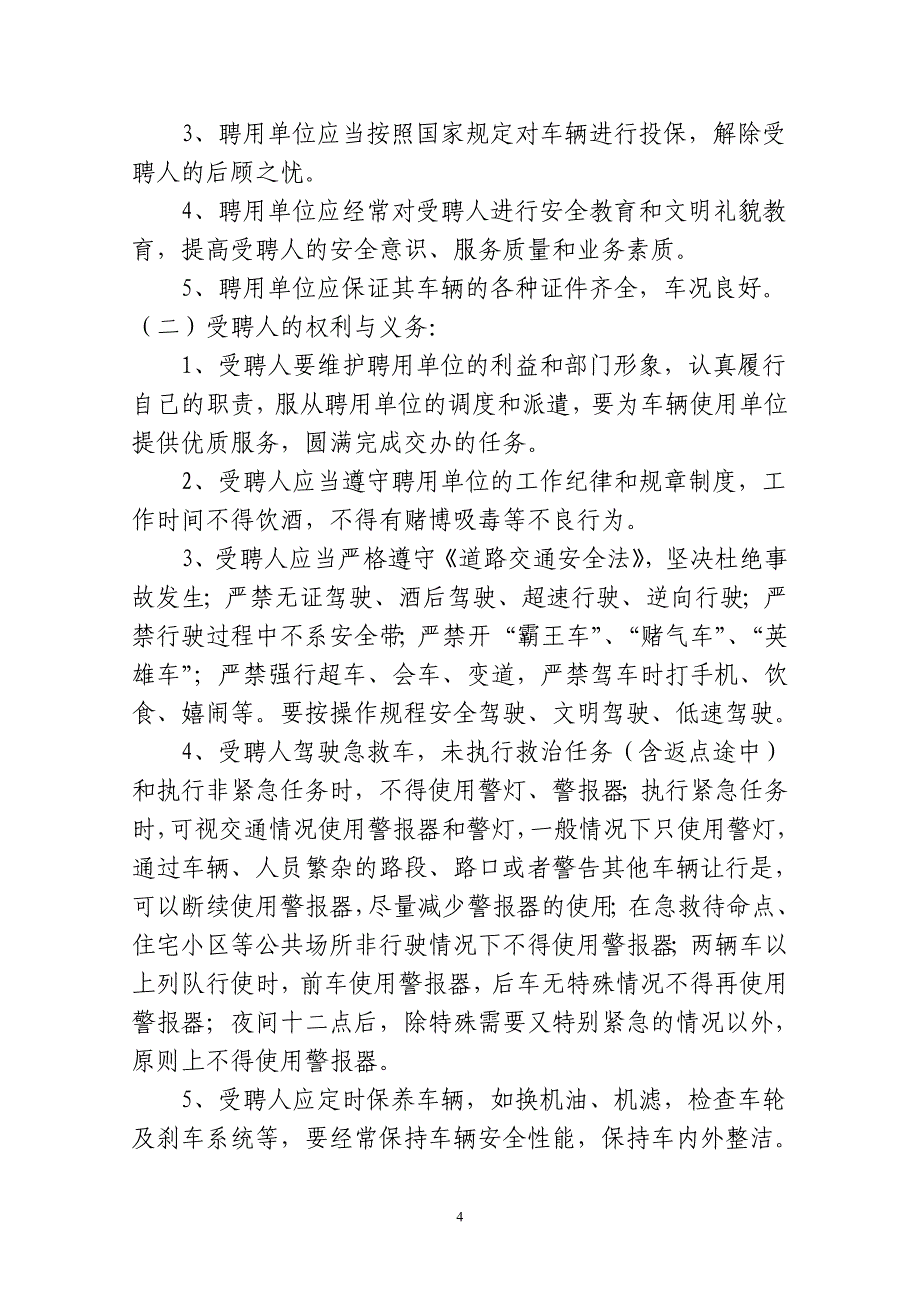 3、聘用单位应当按照国家规定对车辆进行投保，解除受
聘人的后顾之忧。
4、聘用单位应经常对受聘人进行安全教育和文明礼貌教
育，提高受聘人的安全意识、服务质量和业务素质。
5、聘用单位应保证其车辆的各种证件齐全，车况良好。
（二）受聘人的权利与义务：
1、受聘人要维护聘用单位的利益和部门形象，认真履行
自己的职责，服从聘用单位的调度和派遣，要为车辆使用单位
提供优质服务，圆满完成交办的任务。
2、受聘人应当遵守聘用单位的工作纪律和规章制度，工
作时间不得饮酒，不得有赌博吸毒等不良行为。
3、受聘人应当严格遵守《道路交通安全法》，坚决杜绝事
故发生；严禁无证驾驶、酒后驾驶、超速行驶、逆向行驶；严
禁行驶过程中不系安全带；严禁开“霸王车”、“赌气车”、“英
雄车”；严禁强行超车、会车、变道，严禁驾车时打手机、饮
食、嬉闹等。要按操作规程安全驾驶、文明驾驶、低速驾驶。
4、受聘人驾驶急救车，未执行救治任务（含返点途中）
和执行非紧急任务时，不得使用警灯、警报器；执行紧急任务
时，可视交通情况使用警报器和警灯，一般情况下只使用警灯，
通过车辆、人员繁杂的路段、路口或者警告其他车辆让行是，
可以断续使用警报器，尽量减少警报器的使用；在急救待命点、
住宅小区等公共场所非行驶情况下不得使用警报器；两辆车以
上列队行使时，前车使用警报器，后车无特殊情况不得再使用
警报器；夜间十二点后，除特殊需要又特别紧急的情况以外，
原则上不得使用警报器。
5、受聘人应定时保养车辆，如换机油、机滤，检查车轮
及刹车系统等，要经常保持车辆安全性能，保持车内外整洁。
4